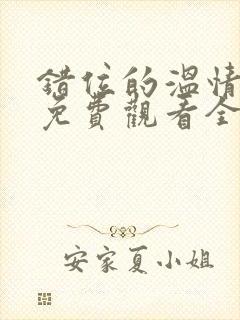 錯位的溫情
免費觀看全
安家夏小姐